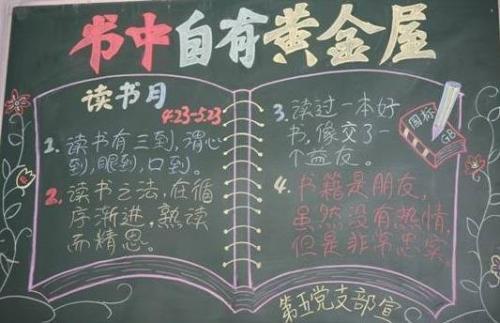 书中自有黄金屋
读书月
4.23-5.23
1. 读书有三到，谓心
到，眼到，口到。
2. 读书之法，在循
序渐进，熟读
而精思。
3. 读过一本好
书，像交了一
个益友。
4. 书籍是朋友，
虽然没有热情，
但是非常忠实
国标
GB
第五党支部宣